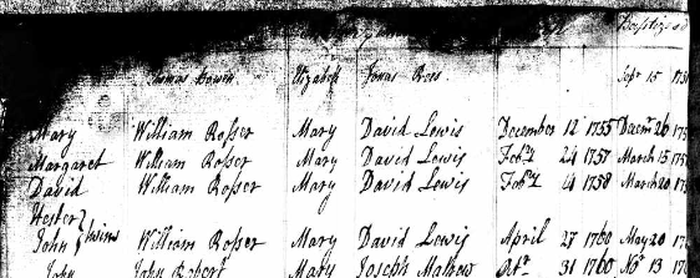 Baptized
Thomas Bowen Elizabeth Jonas Rees Sepr 15
Mary William Rosser Mary David Lewis December 12 1755 Decemr 26
Margaret William Rosser Mary David Lewis Feby 24 1757 March 15
David William Rosser Mary David Lewis Feby 4 1758 March 20
Hester }
John } twins William Rosser Mary David Lewis April 27 1760 May 20
John John Robert Mary Joseph Mathew Octr 31 1760 Nov 13